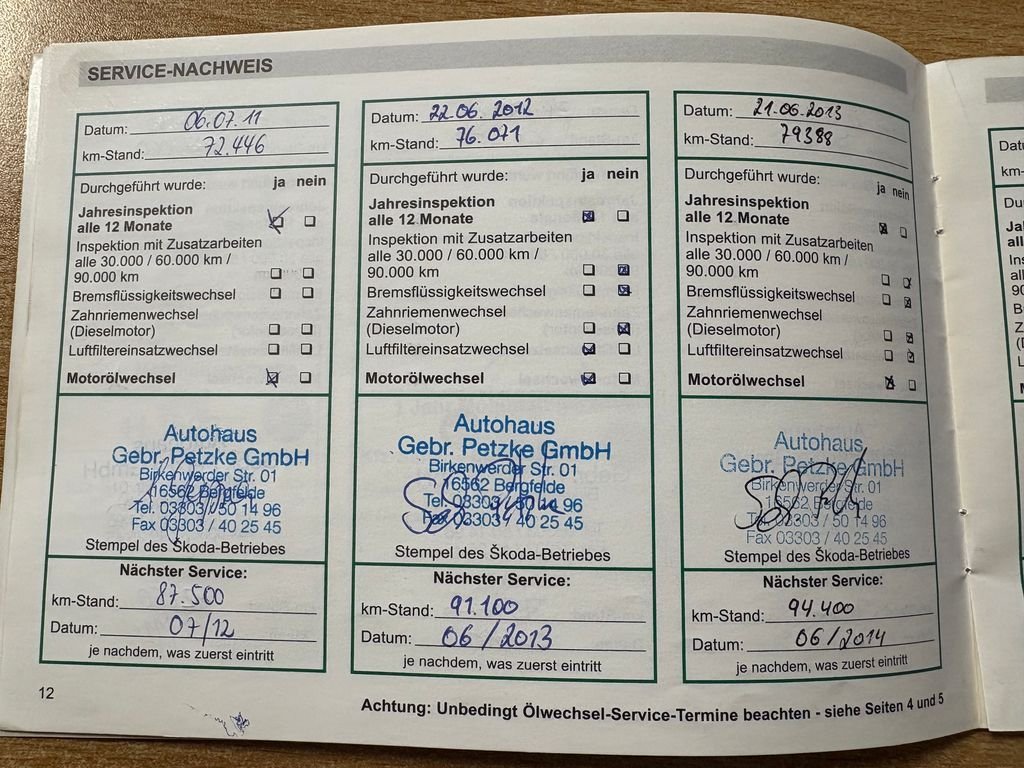 SERVICE-NACHWEIS
Datum: 06.07.11
km-Stand: 72.446
Durchgeführt wurde: ja nein
Jahresinspektion
alle 12 Monate
Inspektion mit Zusatzarbeiten
alle 30.000 / 60.000 km /
90.000 km
Bremsflüssigkeitswechsel
Zahnriemenwechsel
(Dieselmotor)
Luftfiltereinsatzwechsel
Motorölwechsel
Autohaus
Gebr. Petzke GmbH
Birkenwerder Str. 01
16562 Bergfelde
Tel. 03303 / 50 14 96
Fax 03303 / 40 25 45
Stempel des Škoda-Betriebes
Nächster Service:
km-Stand: 87.500
Datum: 07/12
je nachdem, was zuerst eintritt
Datum: 22.06.2012
km-Stand: 76.071
Durchgeführt wurde: ja nein
Jahresinspektion
alle 12 Monate
Inspektion mit Zusatzarbeiten
alle 30.000 / 60.000 km /
90.000 km
Bremsflüssigkeitswechsel
Zahnriemenwechsel
(Dieselmotor)
Luftfiltereinsatzwechsel
Motorölwechsel
Autohaus
Gebr. Petzke GmbH
Birkenwerder Str. 01
16562 Bergfelde
Tel. 03303 / 50 14 96
Fax 03303 / 40 25 45
Stempel des Škoda-Betriebes
Nächster Service:
km-Stand: 91.100
Datum: 06/2013
je nachdem, was zuerst eintritt
Datum: 21.06.2013
km-Stand: 79388
Durchgeführt wurde: ja nein
Jahresinspektion
alle 12 Monate
Inspektion mit Zusatzarbeiten
alle 30.000 / 60.000 km /
90.000 km
Bremsflüssigkeitswechsel
Zahnriemenwechsel
(Dieselmotor)
Luftfiltereinsatzwechsel
Motorölwechsel
Autohaus
Gebr. Petzke GmbH
Birkenwerder Str. 01
16562 Bergfelde
Tel. 03303 / 50 14 96
Fax 03303 / 40 25 45
Stempel des Škoda-Betriebes
Nächster Service:
km-Stand: 94.400
Datum: 06/2014
je nachdem, was zuerst eintritt
12
Achtung: Unbedingt Ölwechsel-Service-Termine beachten - siehe Seiten 4 und 5